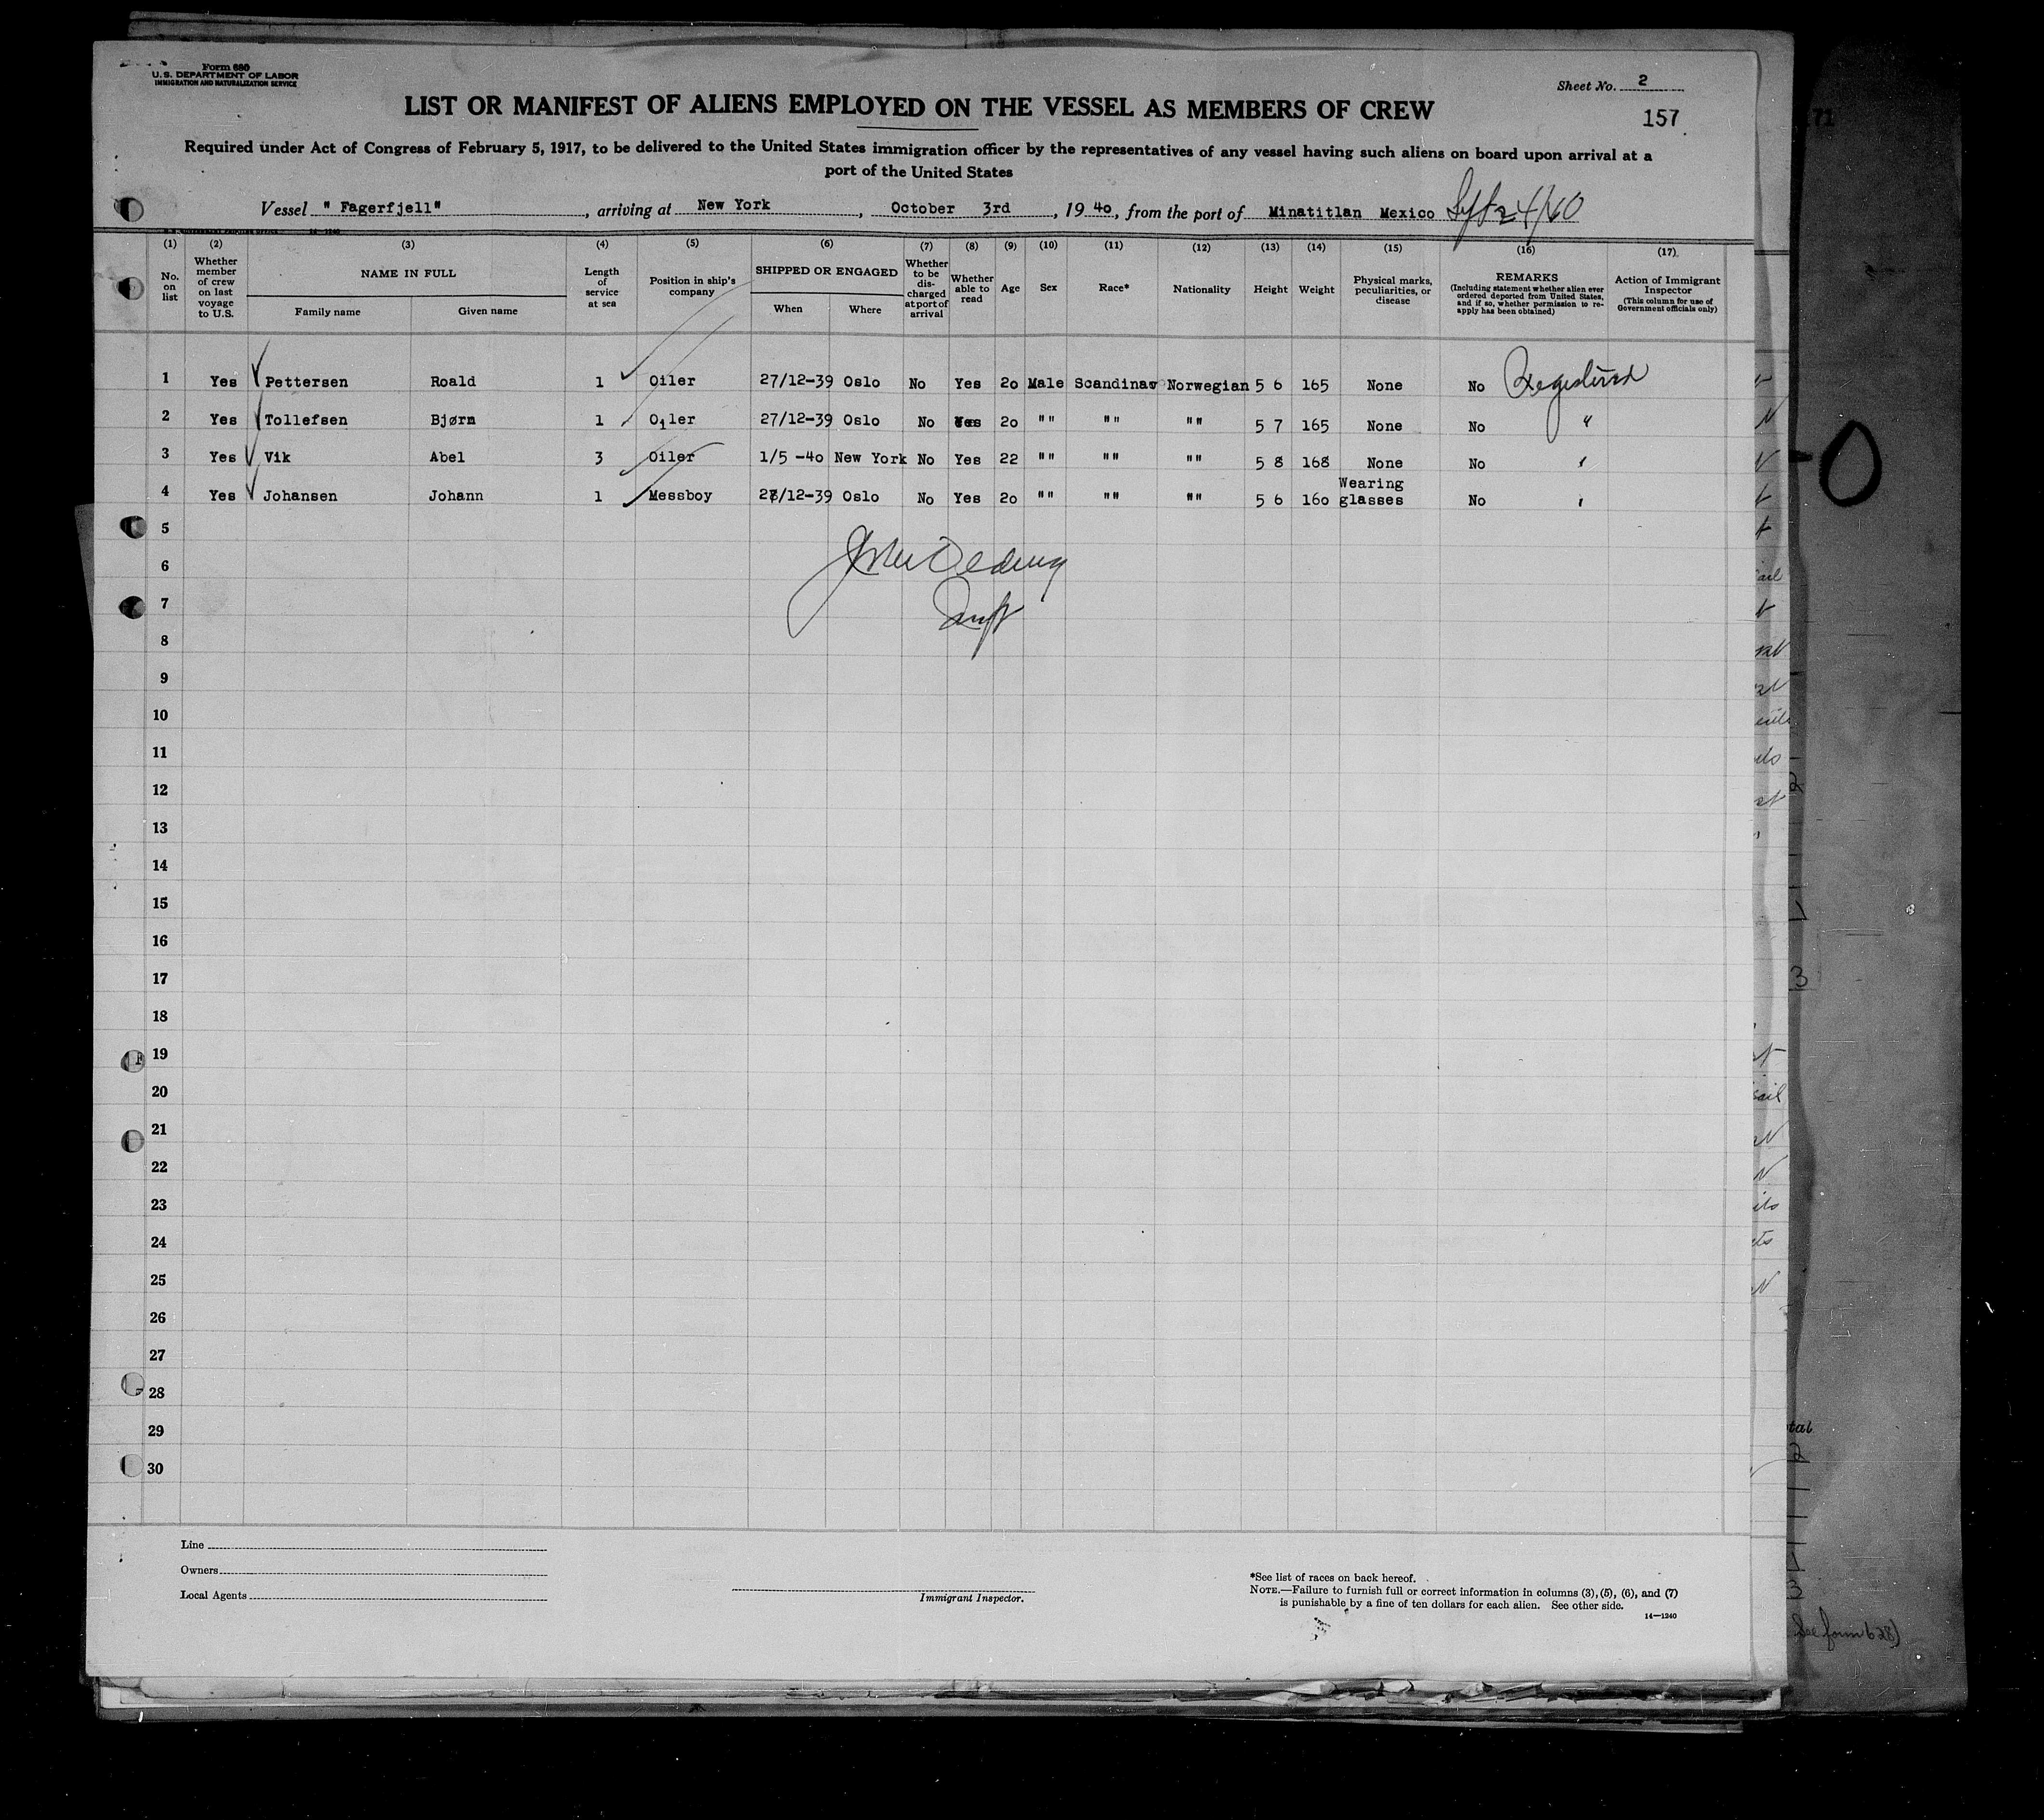 Form 680
U.S. DEPARTMENT OF LABOR
IMMIGRATION AND NATURALIZATION SERVICE
Sheet No. 2
LIST OR MANIFEST OF ALIENS EMPLOYED ON THE VESSEL AS MEMBERS OF CREW
157
Required under Act of Congress of February 5, 1917, to be delivered to the United States immigration officer by the representatives of any vessel having such aliens on board upon arrival at a
port of the United States
Vessel " Fagerfjell" , arriving at New York , October 3rd , 1940, from the port of Minatitlan Mexico
(1) (2) (3) (4) (5) (6) (7) (8) (9) (10) (11) (12) (13) (14) (15) (16) (17)
No. on list
Whether member of crew on last voyage to U.S.
NAME IN FULL
Family name
Given name
Length of service at sea
Position in ship's company
SHIPPED OR ENGAGED
When
Where
Whether to be discharged at port of arrival
Whether able to read
Age
Sex
Race*
Nationality
Height
Weight
Physical marks, peculiarities, or disease
REMARKS
(Including statement whether alien ever ordered deported from United States, and if so, whether permission to reapply has been obtained)
Action of Immigrant Inspector
(This column for use of Government officials only)
1 Yes Pettersen Roald 1 Oiler 27/12-39 Oslo No Yes 20 Male Scandinav Norwegian 5 6 165 None No Registered
2 Yes Tollefsen Bjørn 1 Oiler 27/12-39 Oslo No Yes 20 "" "" "" 5 7 165 None No "
3 Yes Vik Abel 3 Oiler 1/5 -40 New York No Yes 22 "" "" "" 5 8 168 None No
4 Yes Johansen Johann 1 Messboy 27/12-39 Oslo No Yes 20 "" "" "" 5 6 160 Wearing glasses No
5
6
7
8
9
10
11
12
13
14
15
16
17
18
19
20
21
22
23
24
25
26
27
28
29
30
Line
Owners
Local Agents
Immigrant Inspector.
*See list of races on back hereof.
NOTE.—Failure to furnish full or correct information in columns (3), (5), (6), and (7)
is punishable by a fine of ten dollars for each alien. See other side.
14—1240